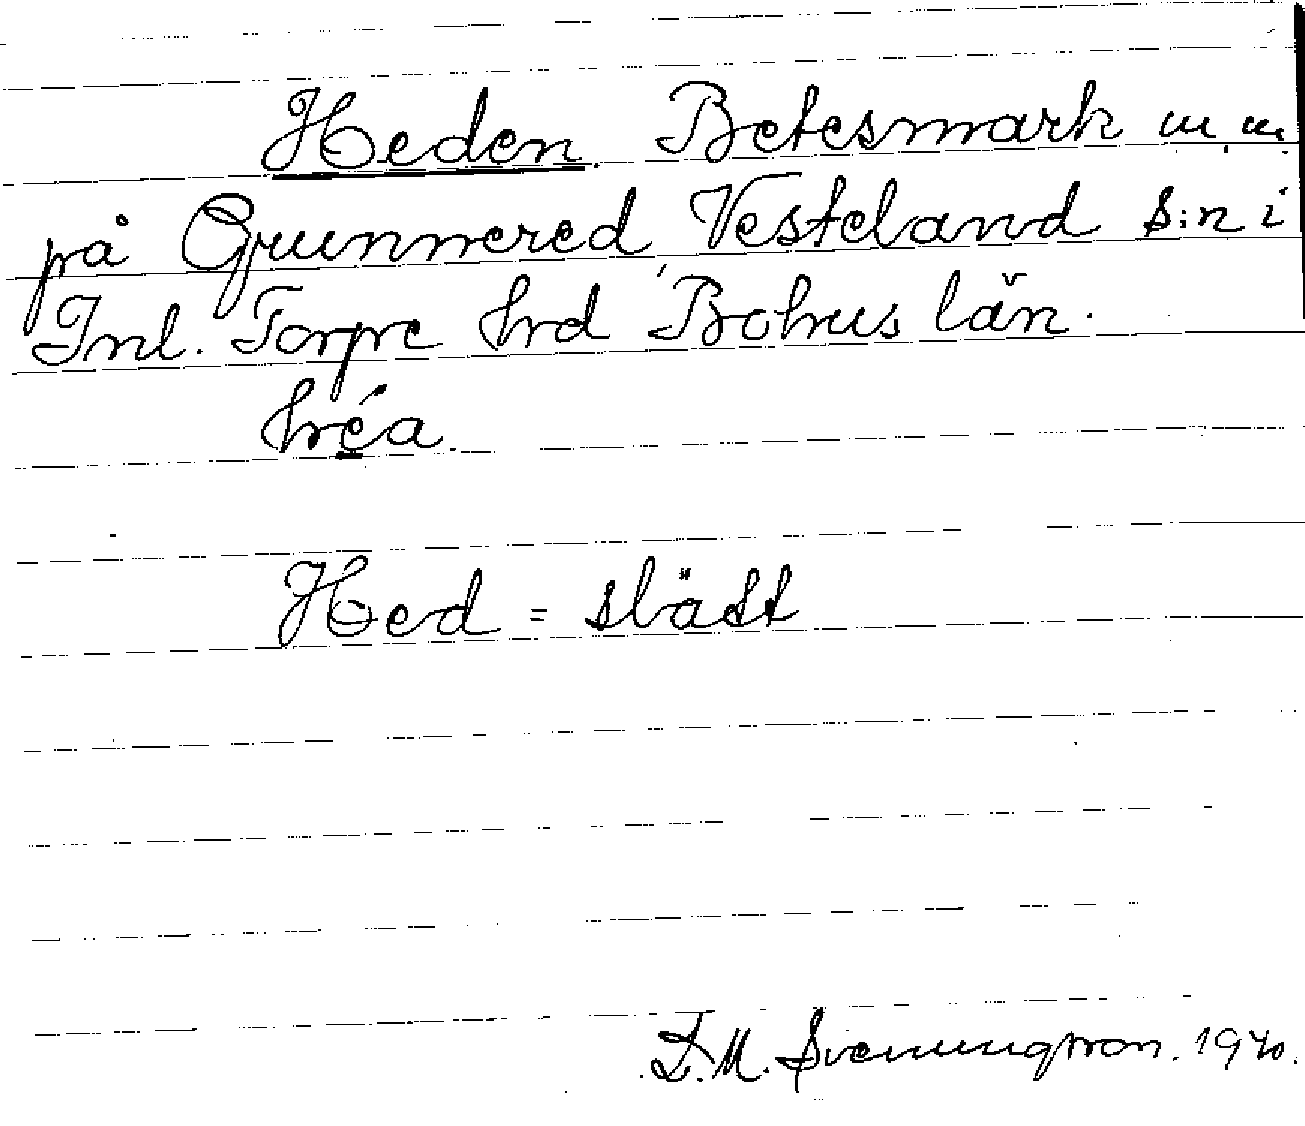 Heden. Betesmark m m
på Grunnered, Vesteland s:n i
Inl. Torpe hrd Bohus län.
hréa.
Hed = slätt
D. M. Svenungsson. 1940.